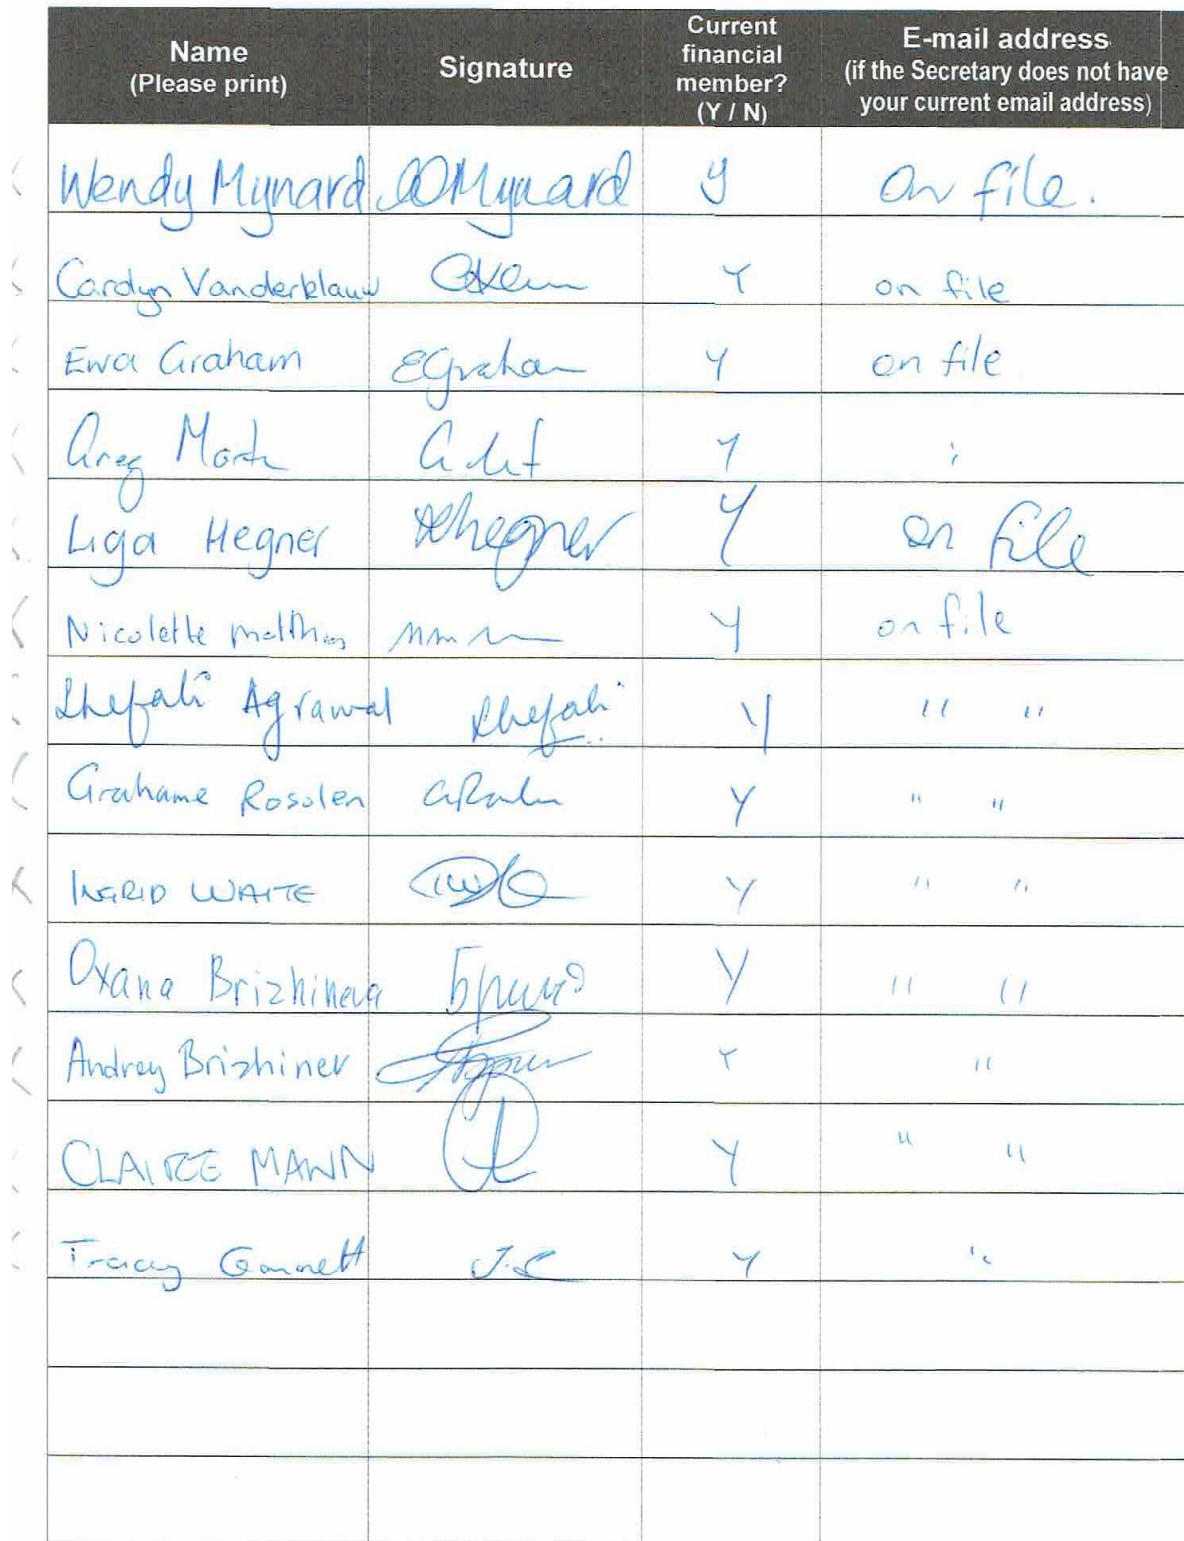 Name
(Please print)
Signature
Current
financial
member?
(Y / N)
E-mail address
(if the Secretary does not have
your current email address)
Wendy Mynard WMynard y on file.
Carolyn Vanderklauw Y on file
Ewa Graham EGraham Y on file
Greg Y "
Liga Hegner Lhegner Y on file
Nicolette Y on file
Shefali Agrawal Shefali Y " "
Grahame Rosolen Y " "
INGRID WAITE Y " "
Oxana Brizhineva Y " "
Andrey Brizhinev Y "
CLAIRE MANN Y " "
Tracey Y "